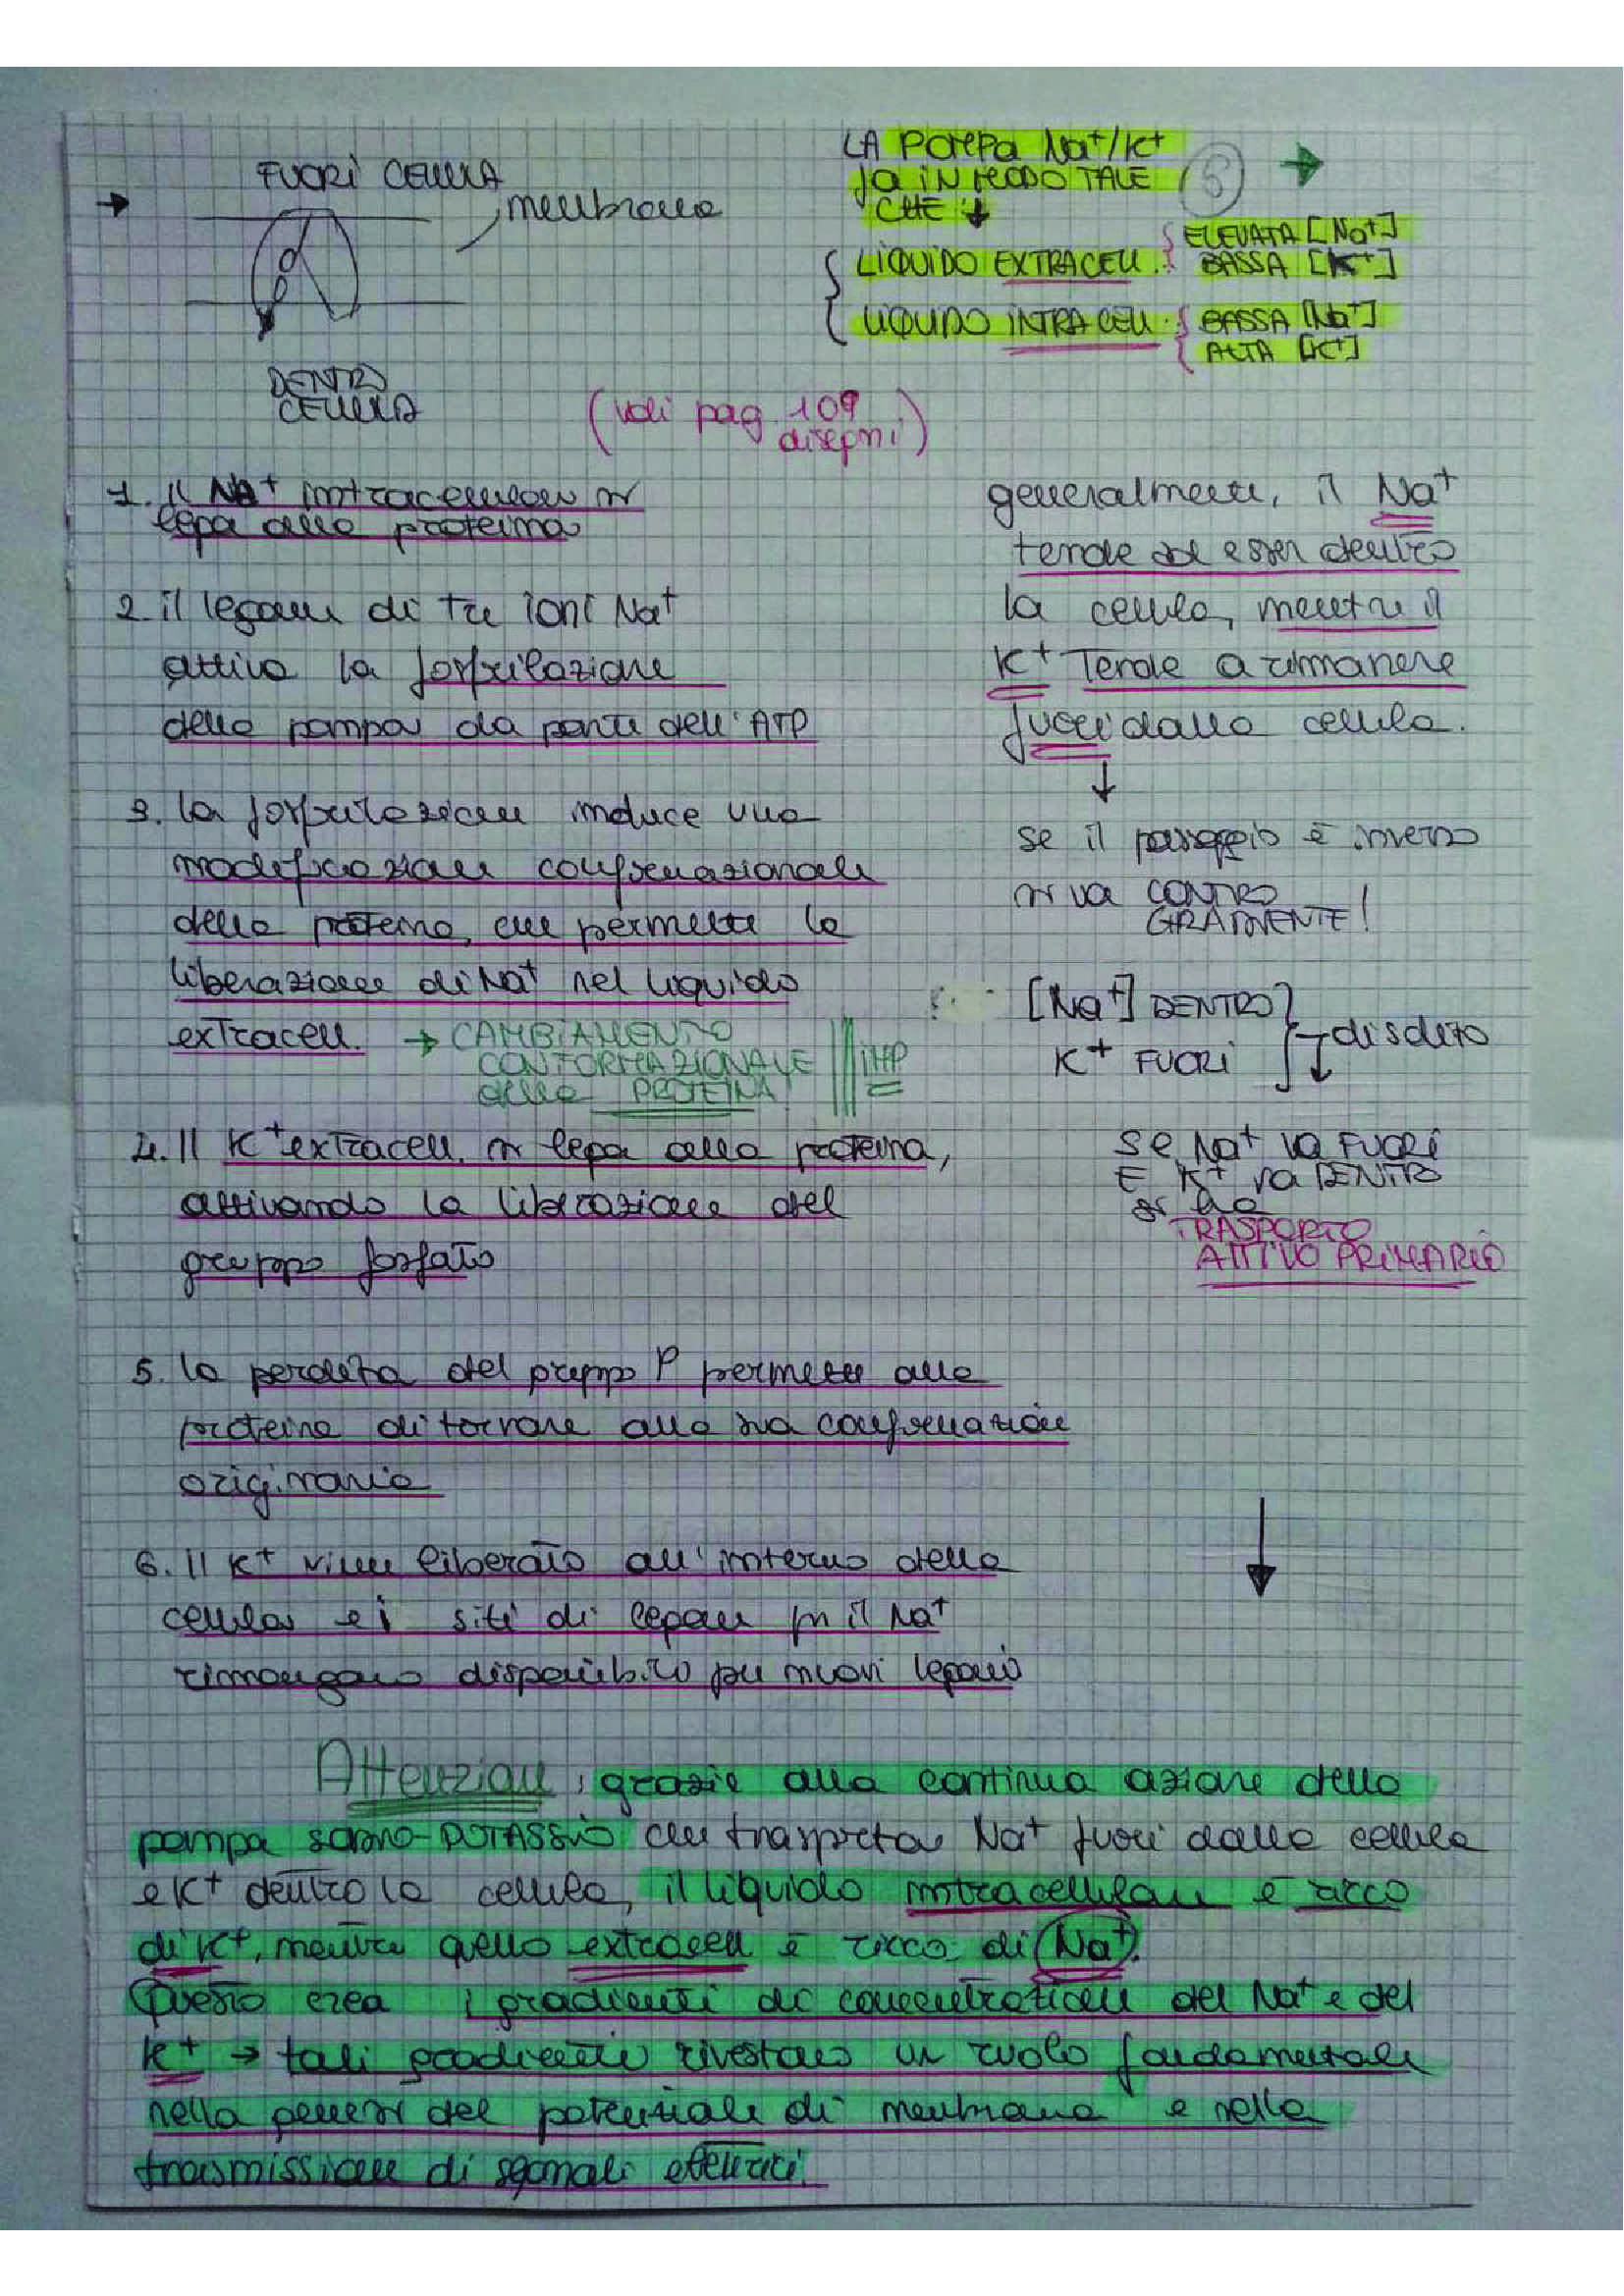 FUORI CELLULA
membrana
DENTRO
CELLULA
LA POMPA Na+/K+
fa IN MODO TALE
CHE ↓
5
LIQUIDO EXTRACELL.
ELEVATA [Na+]
BASSA [K+]
LIQUIDO INTRACELL.
BASSA [Na+]
ALTA [K+]
(vedi pag. 109
disegni)
1. Il Na+ intracellulare si
lega alla proteina
2. il legame di tre ioni Na+
attiva la fosforilazione
della pompa da parte dell'ATP
3. la fosforilazione induce una
modificazione conformazionale
della proteina, che permette la
liberazione di Na+ nel liquido
extracell. → CAMBIAMENTO
CONFORMAZIONALE
della PROTEINA!
IMP
4. Il K+ extracell. si lega alla proteina,
attivando la liberazione del
gruppo fosfato
5. la perdita del gruppo P permette alla
proteina di tornare alla sua conformazione
originaria
6. Il K+ viene liberato all'interno della
cellula e i siti di legame per il Na+
rimangono disponibili per nuovi legami
generalmente, il Na+
tende ad esser dentro
la cellula, mentre il
K+ tende a rimanere
fuori dalla cellula.
↓
se il passaggio è inverso
si va CONTRO
GRADIENTE!
[Na+] DENTRO
K+ FUORI
→ di solito
↓
SE Na+ VA FUORI
E K+ va DENTRO
si ha
TRASPORTO
ATTIVO PRIMARIO
Attenzione: grazie alla continua azione della
pompa SODIO-POTASSIO che trasporta Na+ fuori dalla cellula
e K+ dentro la cellula, il liquido intracellulare è ricco
di K+, mentre quello extracell è ricco di Na+.
Questo crea i gradienti di concentrazione del Na+ e del
K+ → tali gradienti rivestono un ruolo fondamentale
nella genesi del potenziale di membrana e nella
trasmissione di segnali elettrici.